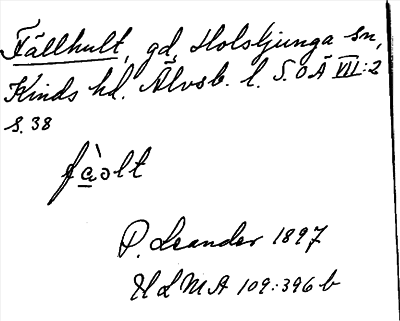 Fällhult, gd, Holsljunga sn,
Kinds hd. Älvsb. l. S.O Ä VII:2
s. 38
fàɔlt
P. Leander 1897
ULMA 109:396 b